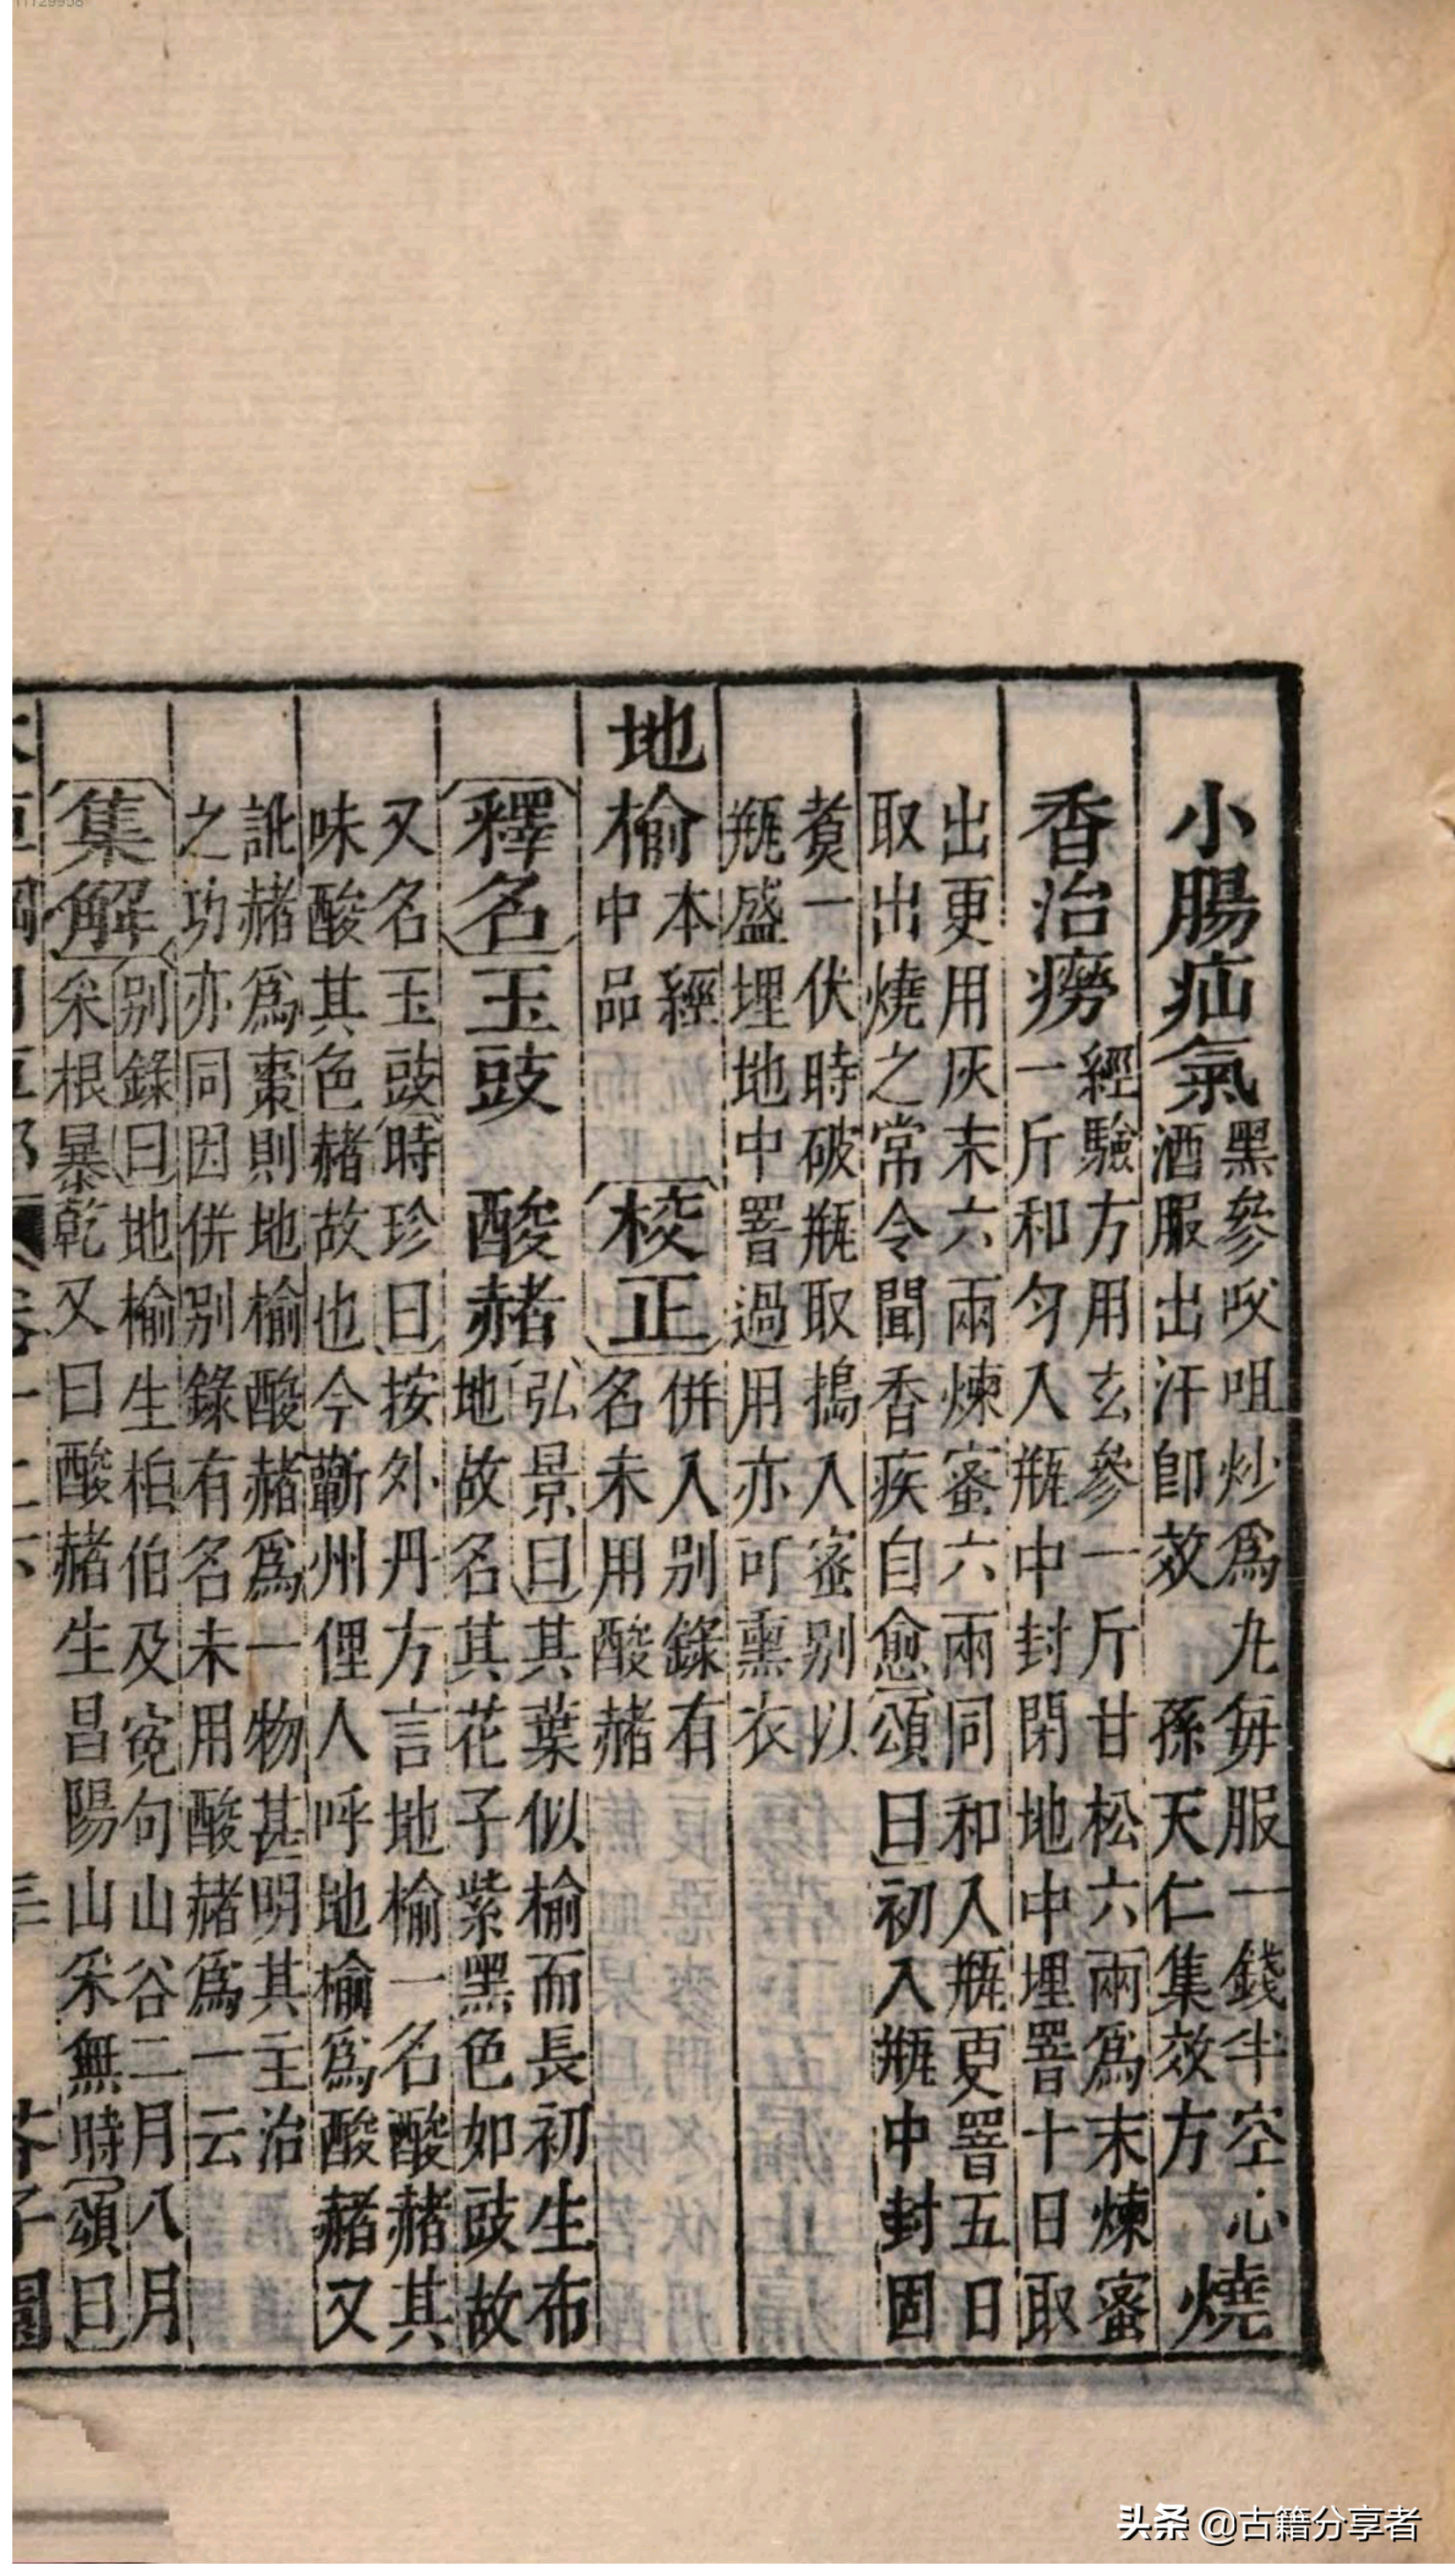 小腸疝氣黑參㕮咀炒爲丸每服一錢半空心
酒服出汗卽效 孫天仁集效方 燒
香治癆經驗方用玄參一斤甘松六兩爲末煉蜜
一斤和勻入瓶中封閉地中埋窨十日取
出更用灰末六兩煉蜜六兩同和入瓶更窨五日
取出燒之常令聞香疾自愈〔頌曰〕初入瓶中封固
煑一伏時破瓶取搗入蜜别以
瓶盛埋地中窨過用亦可熏衣
地榆本經
中品
〔校正〕併入别錄有
名未用酸赭
〔釋名〕玉豉 酸赭〔弘景曰〕其葉似榆而長初生布
地故名其花子紫黑色如豉故
又名玉豉〔時珍曰〕按外丹方言地榆一名酸赭其
味酸其色赭故也今蘄州俚人呼地榆爲酸赭又
訛赭爲棗則地榆酸赭爲一物甚明其主治
之功亦同因併别錄有名未用酸赭爲一云
〔集解〕〔别錄曰〕地榆生桐柏及冤句山谷二月八月
采根暴乾又曰酸赭生昌陽山采無時〔頌曰〕
頭条 @古籍分享者